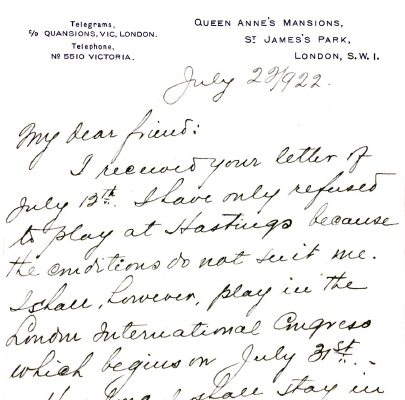 Telegrams,
c/o QUANSIONS, VIC, LONDON.
Telephone,
No 5510 VICTORIA.
QUEEN ANNE'S MANSIONS,
ST JAMES'S PARK,
LONDON, S.W.1.
July 22/922.
My dear friend:
I received your letter of
July 12th. I have only refused
to play at Hastings because
the conditions do not suit me.
I shall, however, play in the
London International Congress
which begins on July 31st. –
I shall stay in